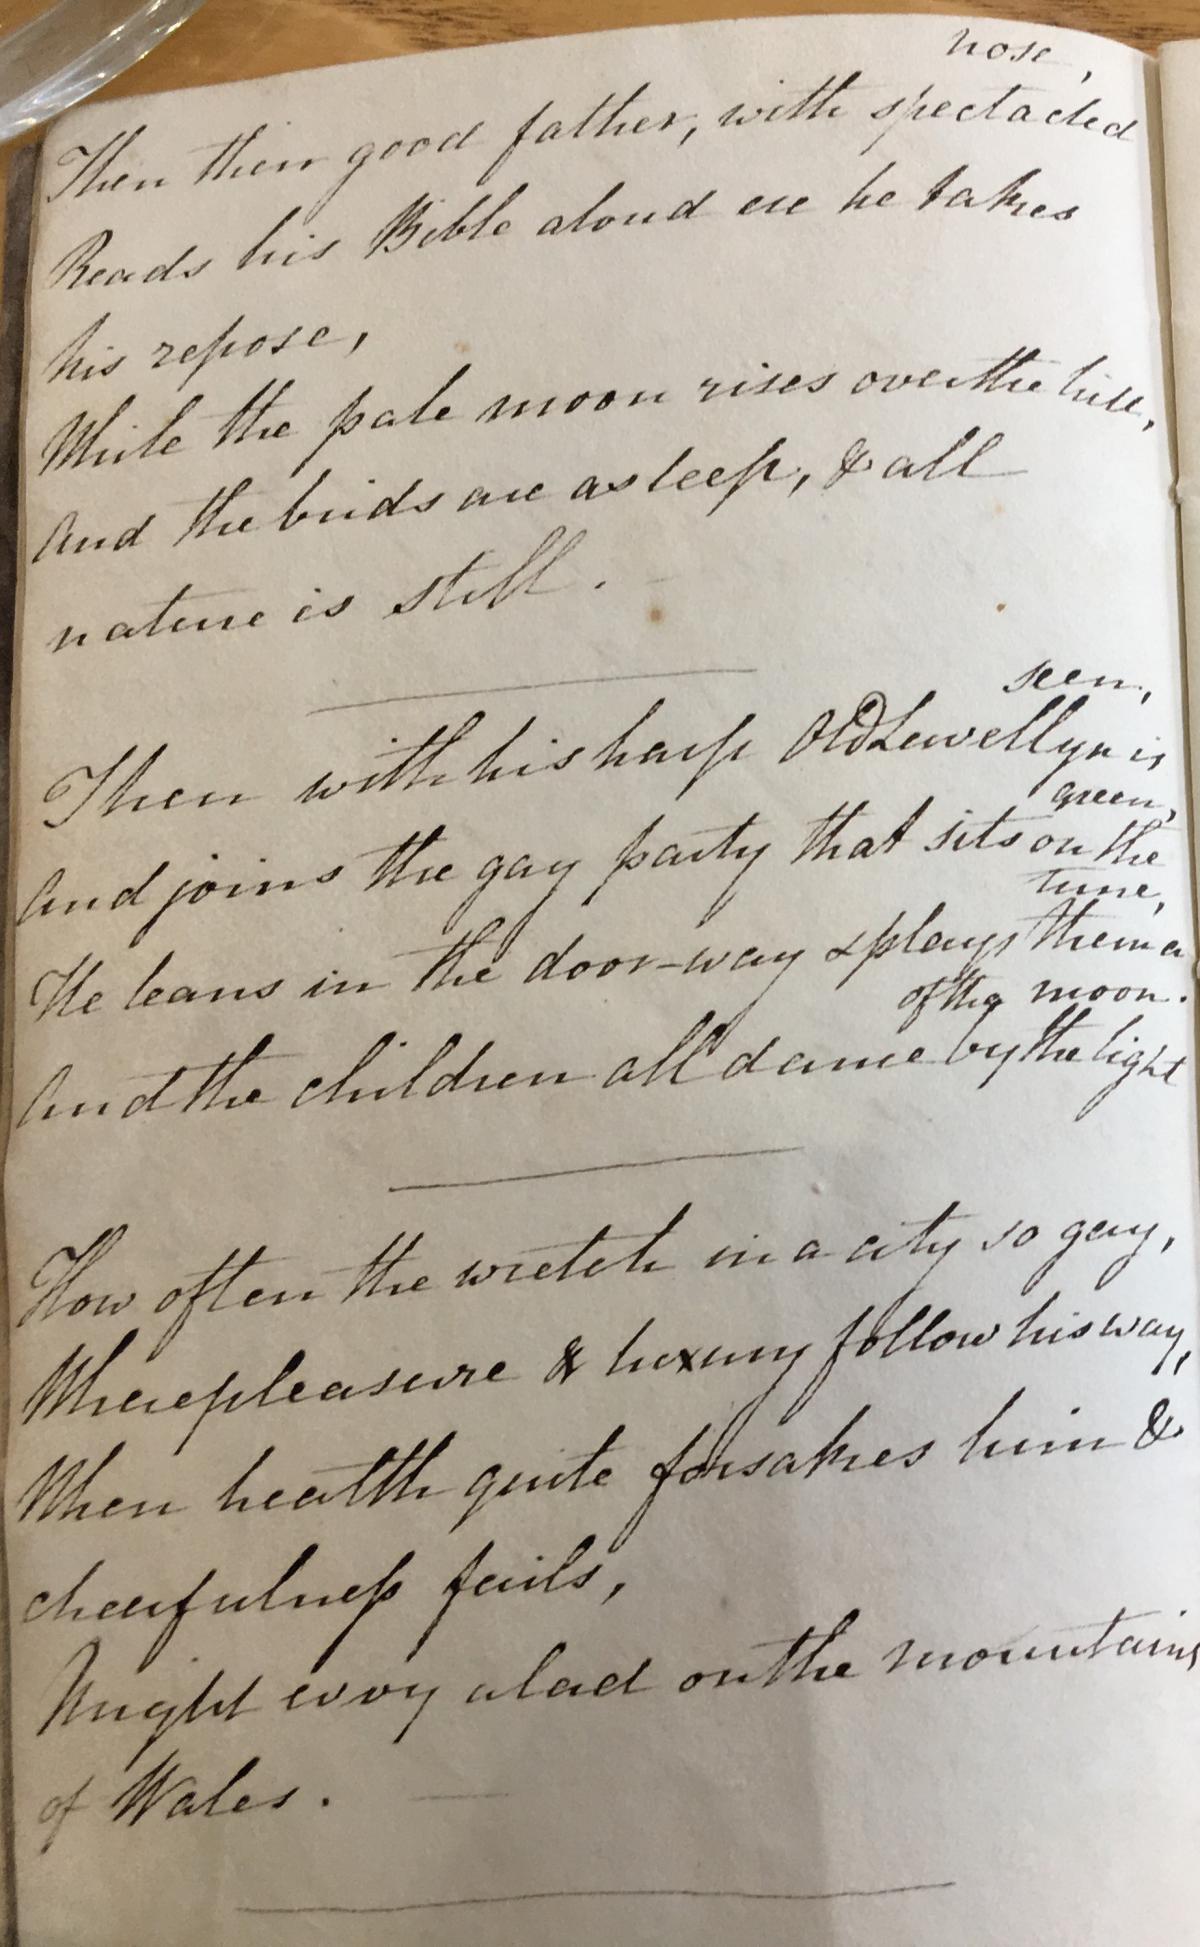 nose,
Then their good father, with spectacled
Reads his Bible aloud ere he takes
his repose,
While the pale moon rises over the hill,
And the birds are asleep, & all
nature is still.
seen,
Then with his harp Old Lewellyn is
green,
And joins the gay party that sits on the
tune,
He leans in the door-way & plays them a
of the moon.
And the children all dance by the light
How often the wretch in a city so gay,
Where pleasure & luxury follow his way,
When health quite forsakes him &
cheerfulness fails,
Might envy a lad on the mountains
of Wales.